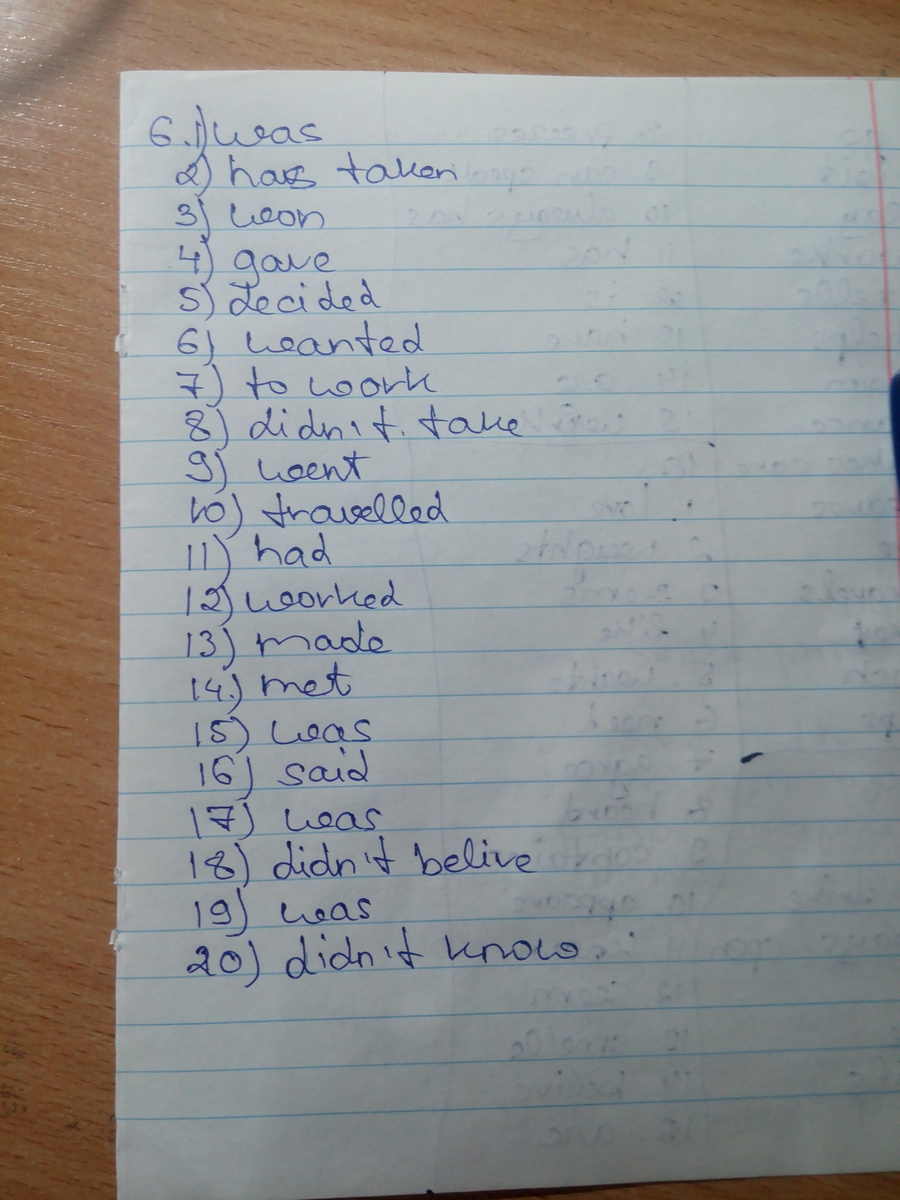 6.1) was
2) has taken
3) won
4) gave
5) decided
6) wanted
7) to work
8) didn't take
9) went
10) travelled
11) had
12) worked
13) made
14.) met
15) was
16) said
17) was
18) didn't belive
19) was
20) didn't know.